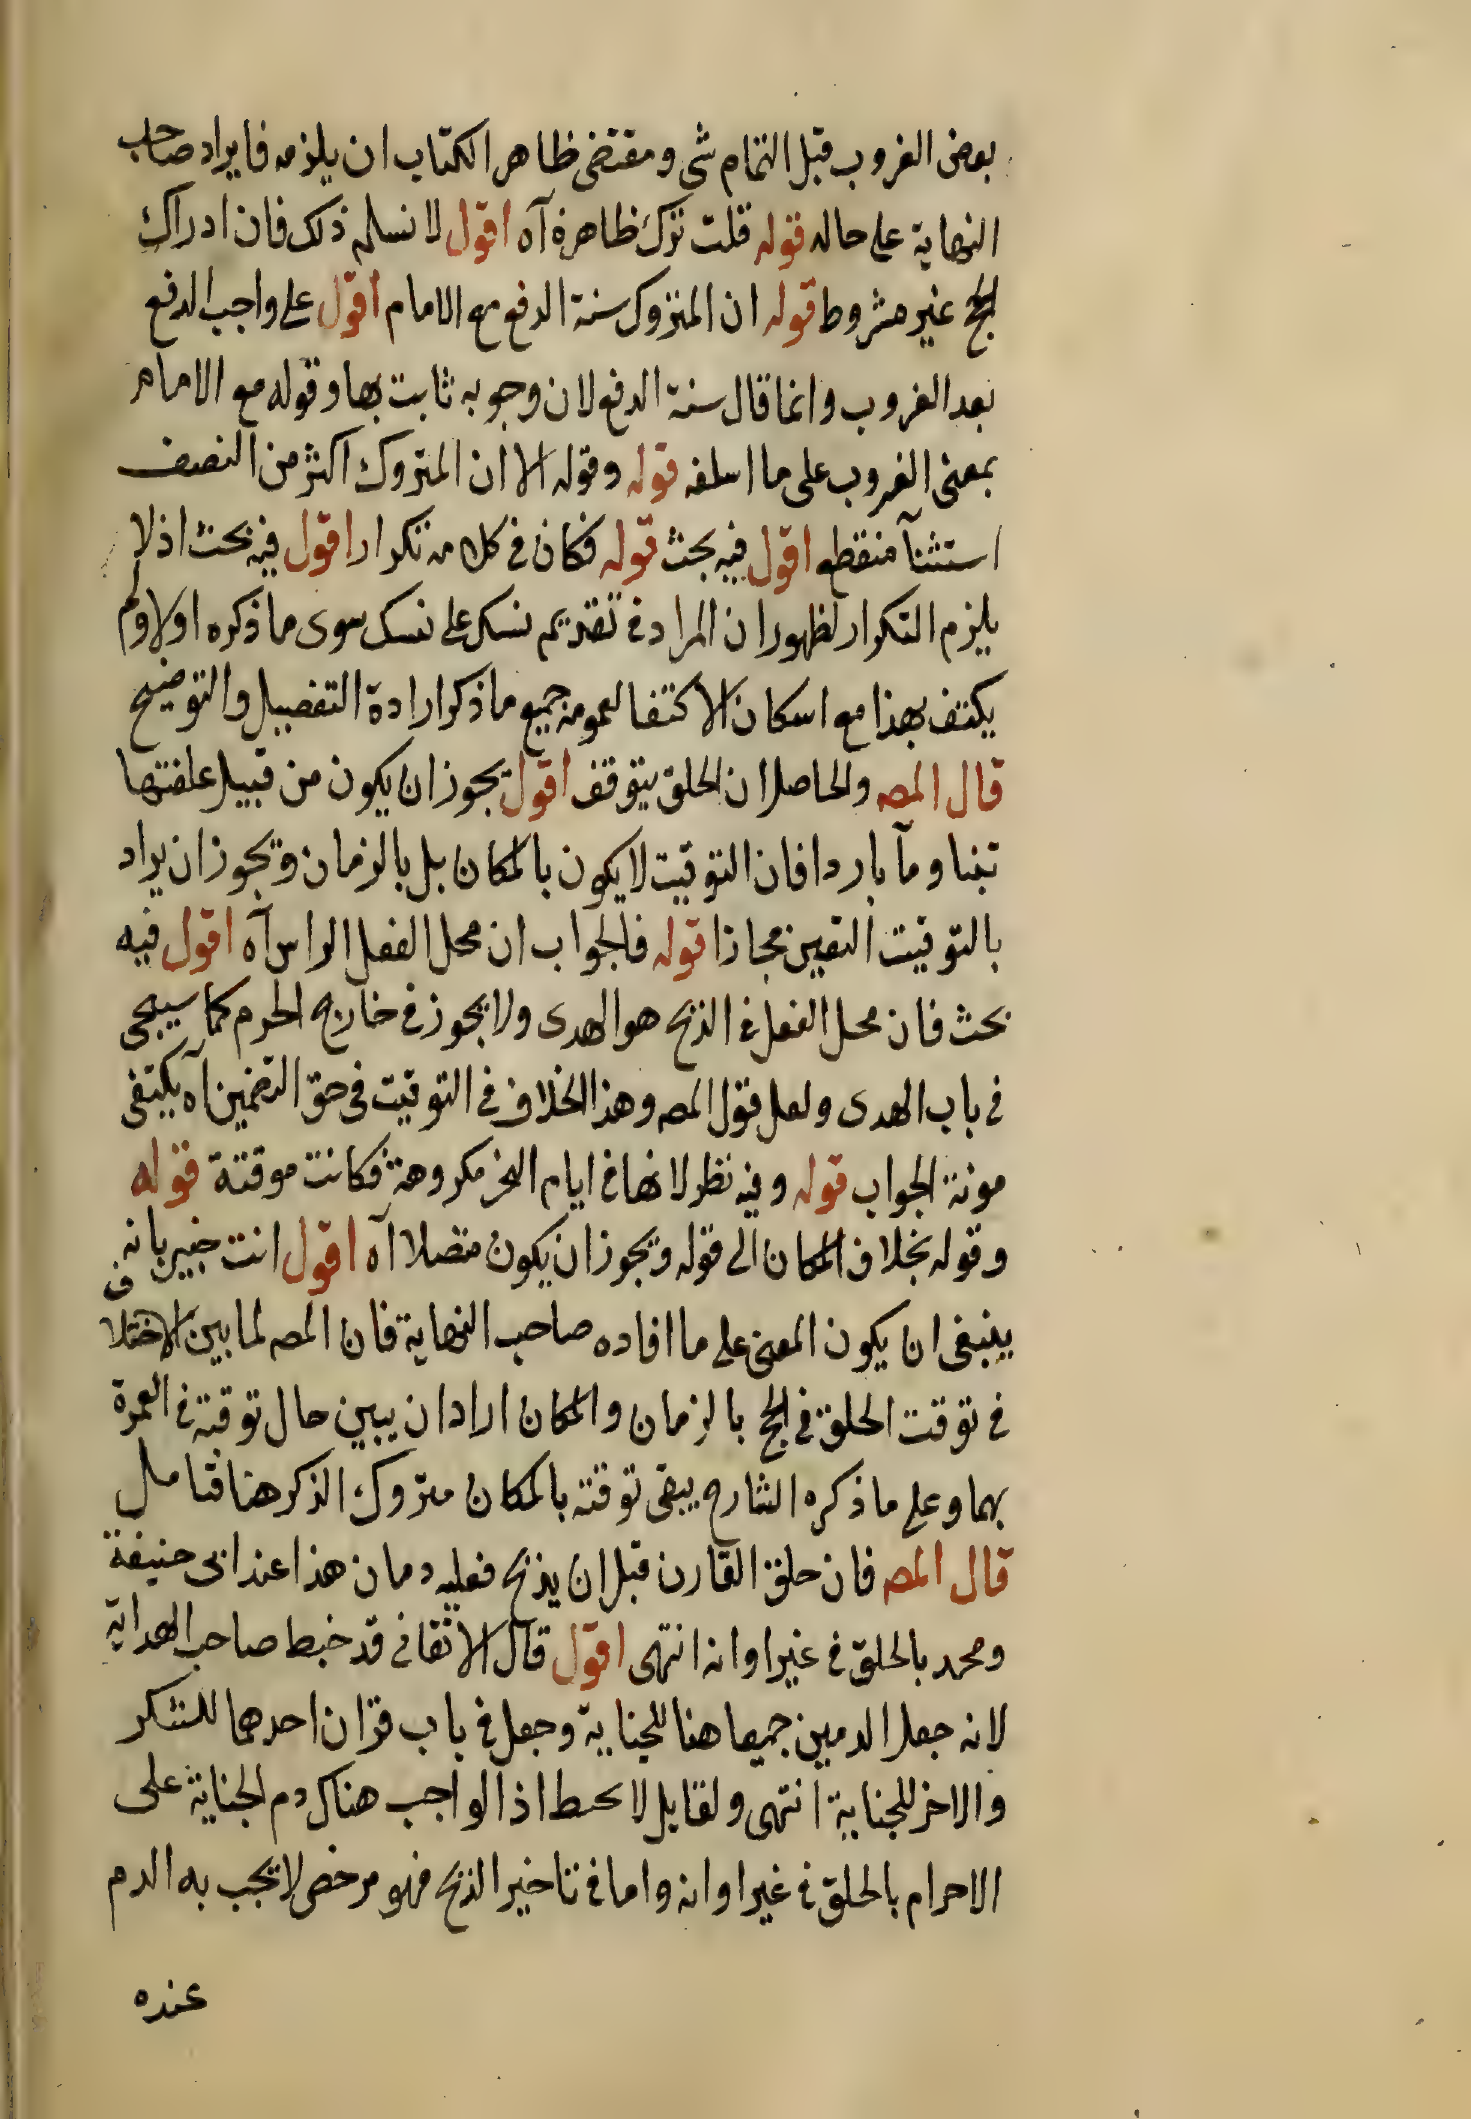 بعض الغروب قبل التمام شى ومقتضى ظاهر الكتاب ان يلزمه فايراد صاحب
النهاية على حاله قوله قلت ترك ظاهره آه اقول لا نسلم ذلك فان ادراك
الحج غير مشروط قوله ان المتروك سنة الدفع مع الامام اقول على واجب الدفع
بعد الغروب وانما قال سنة الدفع لان وجوبه ثابت بها وقوله مع الامام
بمعنى الغروب على ما اسلفه قوله وقوله الا ان المتروك اكثر من النصف
استثنآ منقطع اقول فيه بحث قوله فكان فى كلامه تكرارا اقول فيه بحث اذ لا
يلزم التكرار لظهور ان المراد فى تقديم نسك على نسك سوى ما ذكره اولا ولم
يكتف بهذا مع امكان الاكتفا لعمومه جميع ما ذكر ارادة التفصيل والتوضيح
قال المصه والحاصل ان الحلق يتوقف اقول يجوز ان يكون من قبيل علفتها
تبنا ومآ باردا فان التوقيت لا يكون بالمكان بل بالزمان ويجوز ان يراد
بالتوقيت التعين مجازا قوله فالجواب ان محل الفعل الراس آه اقول فيه
بحث فان محل الفعل فى الذبح هو الهدى ولا يجوز فى خارج الحرم كما سيجى
فى باب الهدى ولعل قول المصه وهذا الخلاف فى التوقيت فى حق التضمين آه يكتفى
مونة الجواب قوله وفيه نظر لانها فى ايام النحر مكروهة فكانت موقتة قوله
وقوله بخلاف المكان الى قوله ويجوز ان يكون متصلا آه اقول انت خبير بانه
ينبغى ان يكون المعنى على ما افاده صاحب النهاية فان المصه لما بين الاختلاف
فى توقت الحلق فى الحج بالزمان والمكان اراد ان يبين حال توقته فى العمرة
بهما وعلى ما ذكره الشارح يبقى توقته بالمكان متروك الذكر هنا فتامل
قال المصه فان حلق القارن قبل ان يذبح فعليه دمان هذا عند ابى حنيفة
ومحمد بالحلق فى غير اوانه انتهى اقول قال الاتقانى قد خبط صاحب الهداية
لانه جعل الدمين جميعا هنا للجناية وجعل فى باب قران احدهما للشكر
والاخر للجناية انتهى ولقايل لا يخبط اذ الواجب هناك دم الجناية على
الاحرام بالحلق فى غير اوانه واما فى تاخير الذبح فهو مرخص لا يجب به الدم
عنده